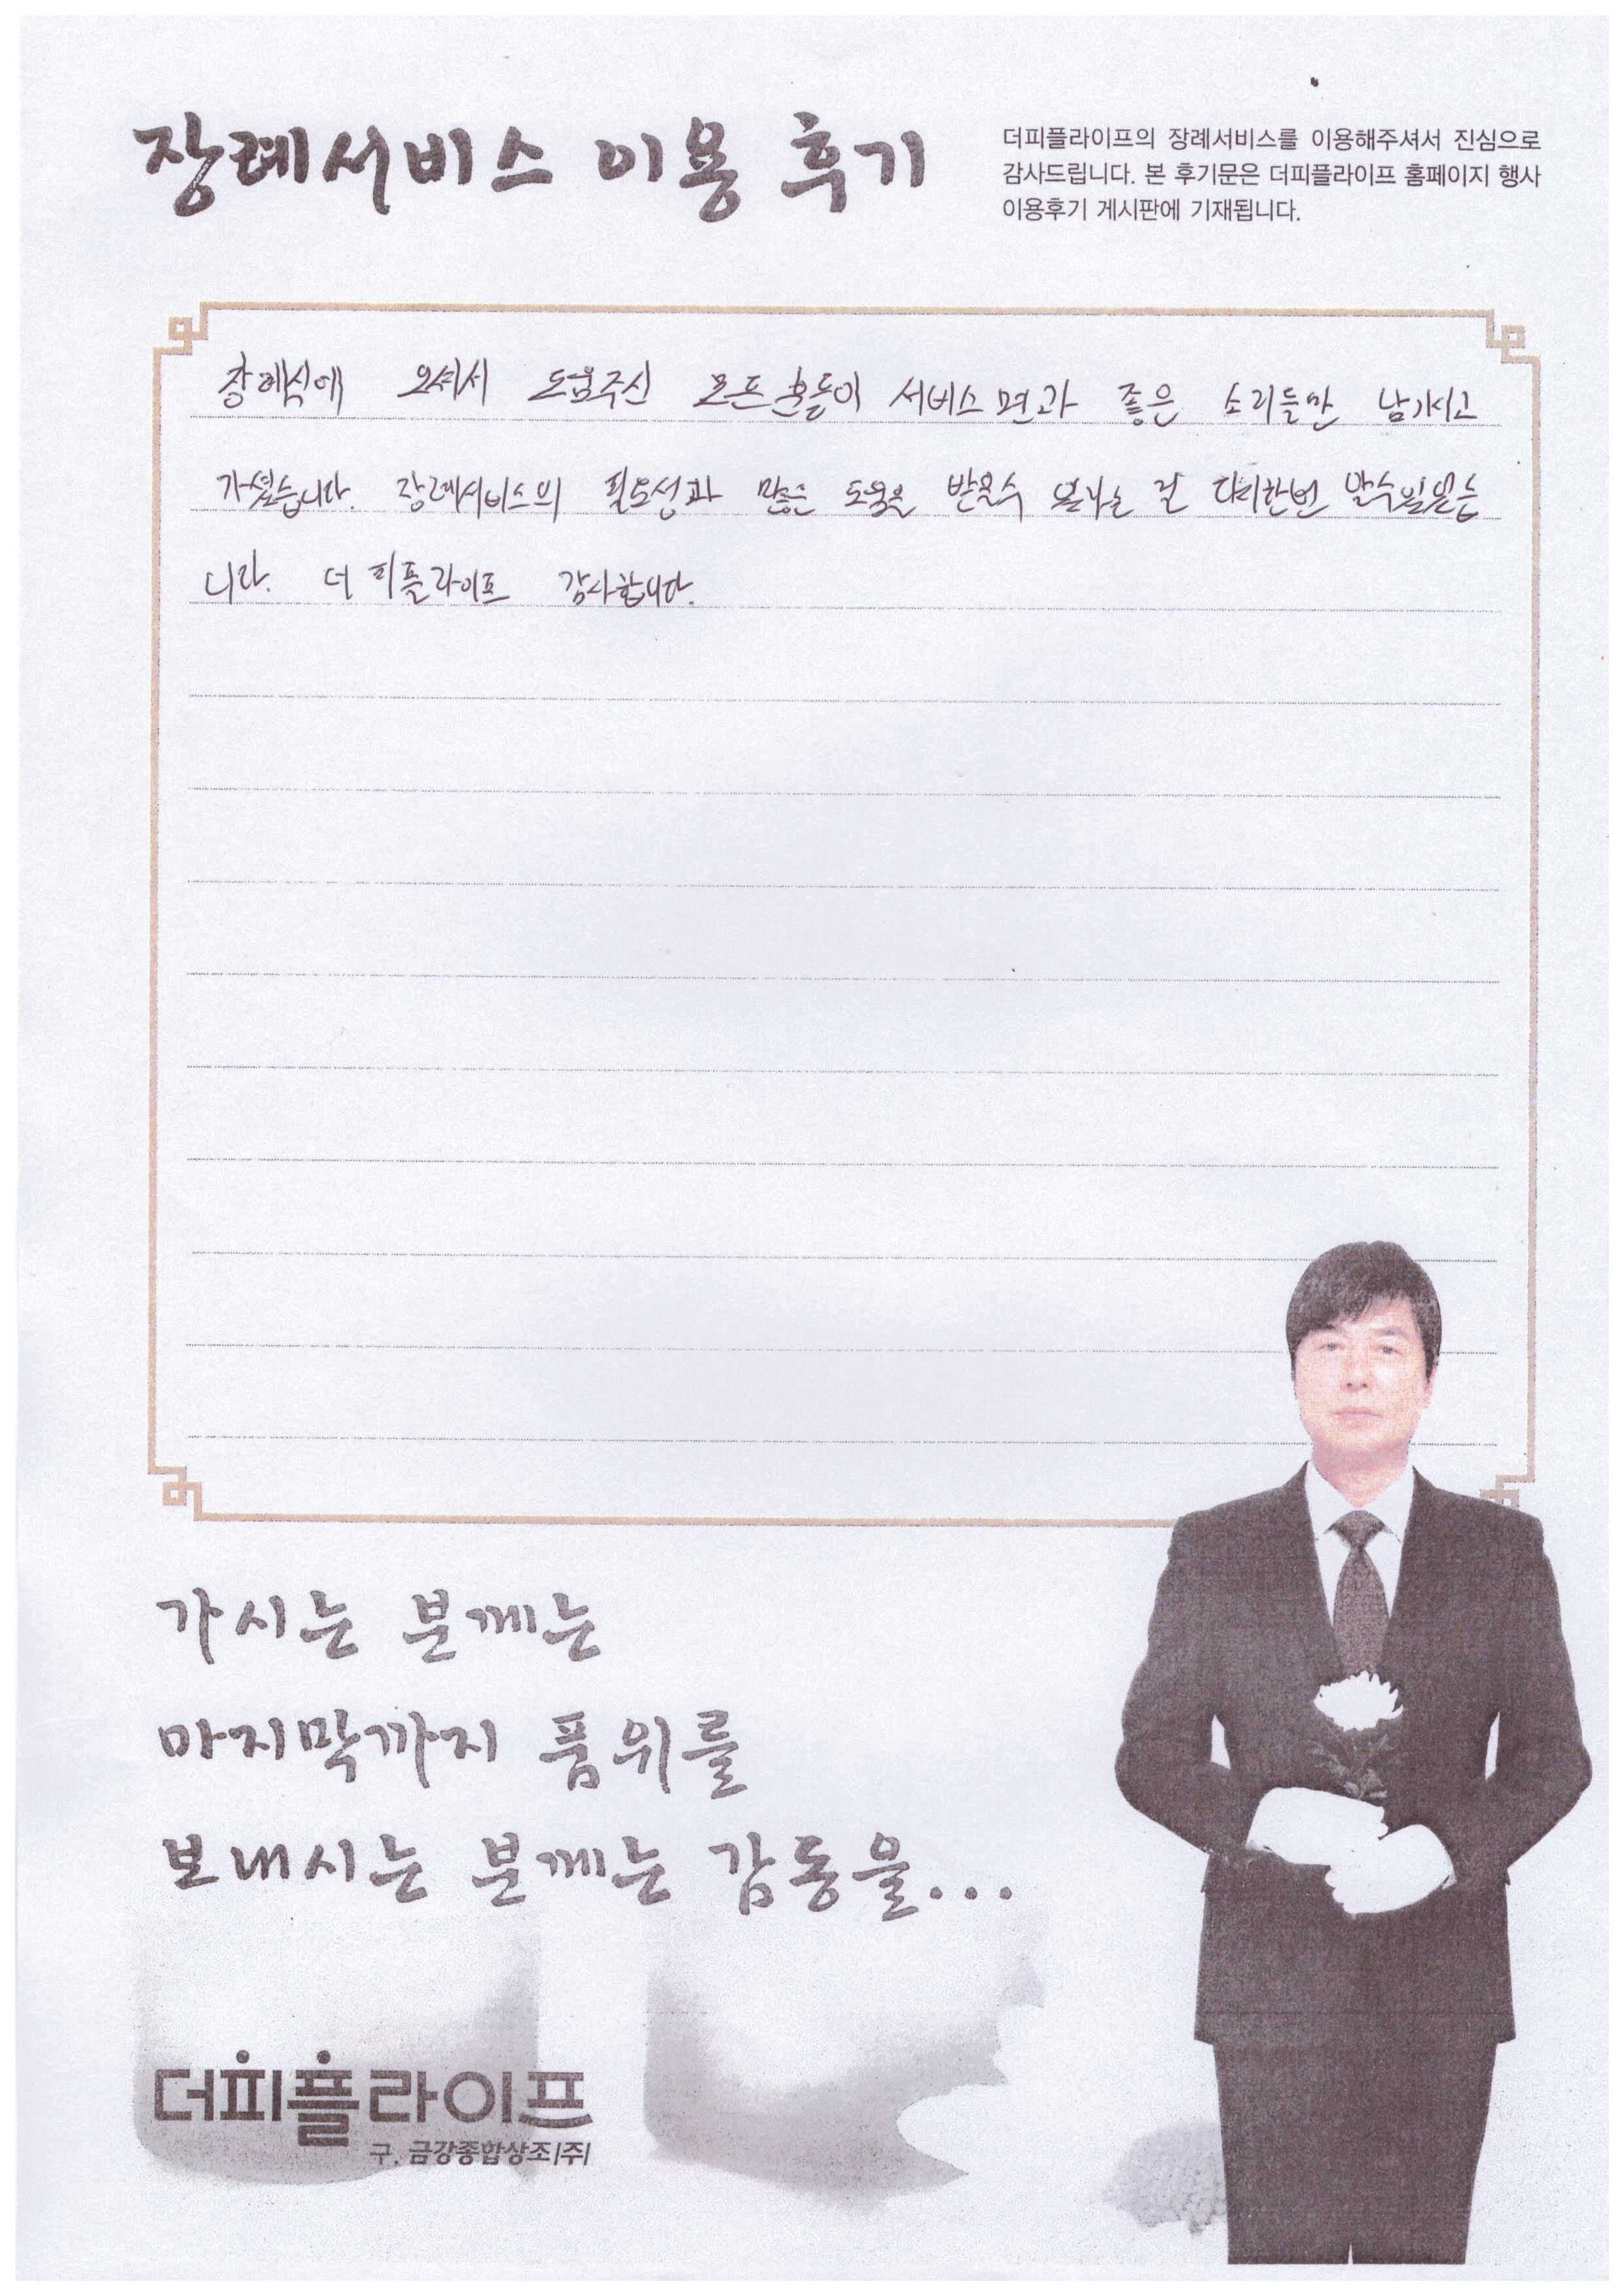 장례서비스 이용 후기
더피플라이프의 장례서비스를 이용해주셔서 진심으로
감사드립니다. 본 후기문은 더피플라이프 홈페이지 행사
이용후기 게시판에 기재됩니다.
장례식에 오셔서 도움주신 모든분들이 서비스면과 좋은 소리들만 남기시고
가셨습니다. 장례서비스의 필요성과 많은 도움을 받을수 있다는 걸 다시한번 알수있었습
니다. 더 피플라이프 감사합니다.
가시는 분께는
마지막까지 품위를
보내시는 분께는 감동을...
더피플라이프
구. 금강종합상조|주|